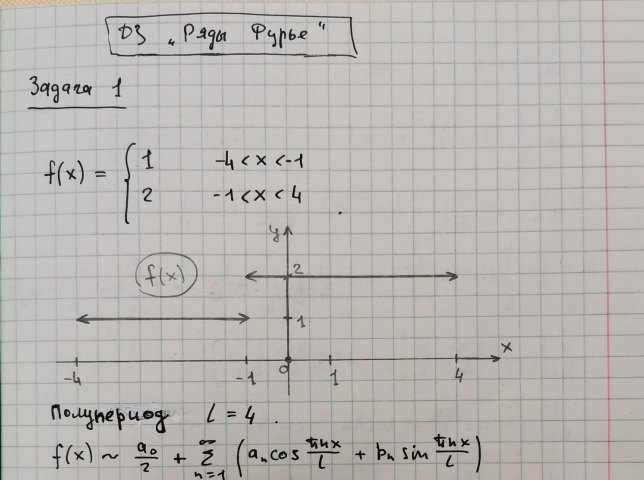 ДЗ „Ряды Фурье"
Задача 1
f(x) = { 1 -4 < x < -1
2 -1 < x < 4
y
f(x)
2
1
-4 -1 0 1 4 x
Полупериод l = 4.
f(x) ~ a₀/2 + ∑ₙ₌₁^∞ (aₙ cos πnx/l + bₙ sin πnx/l)